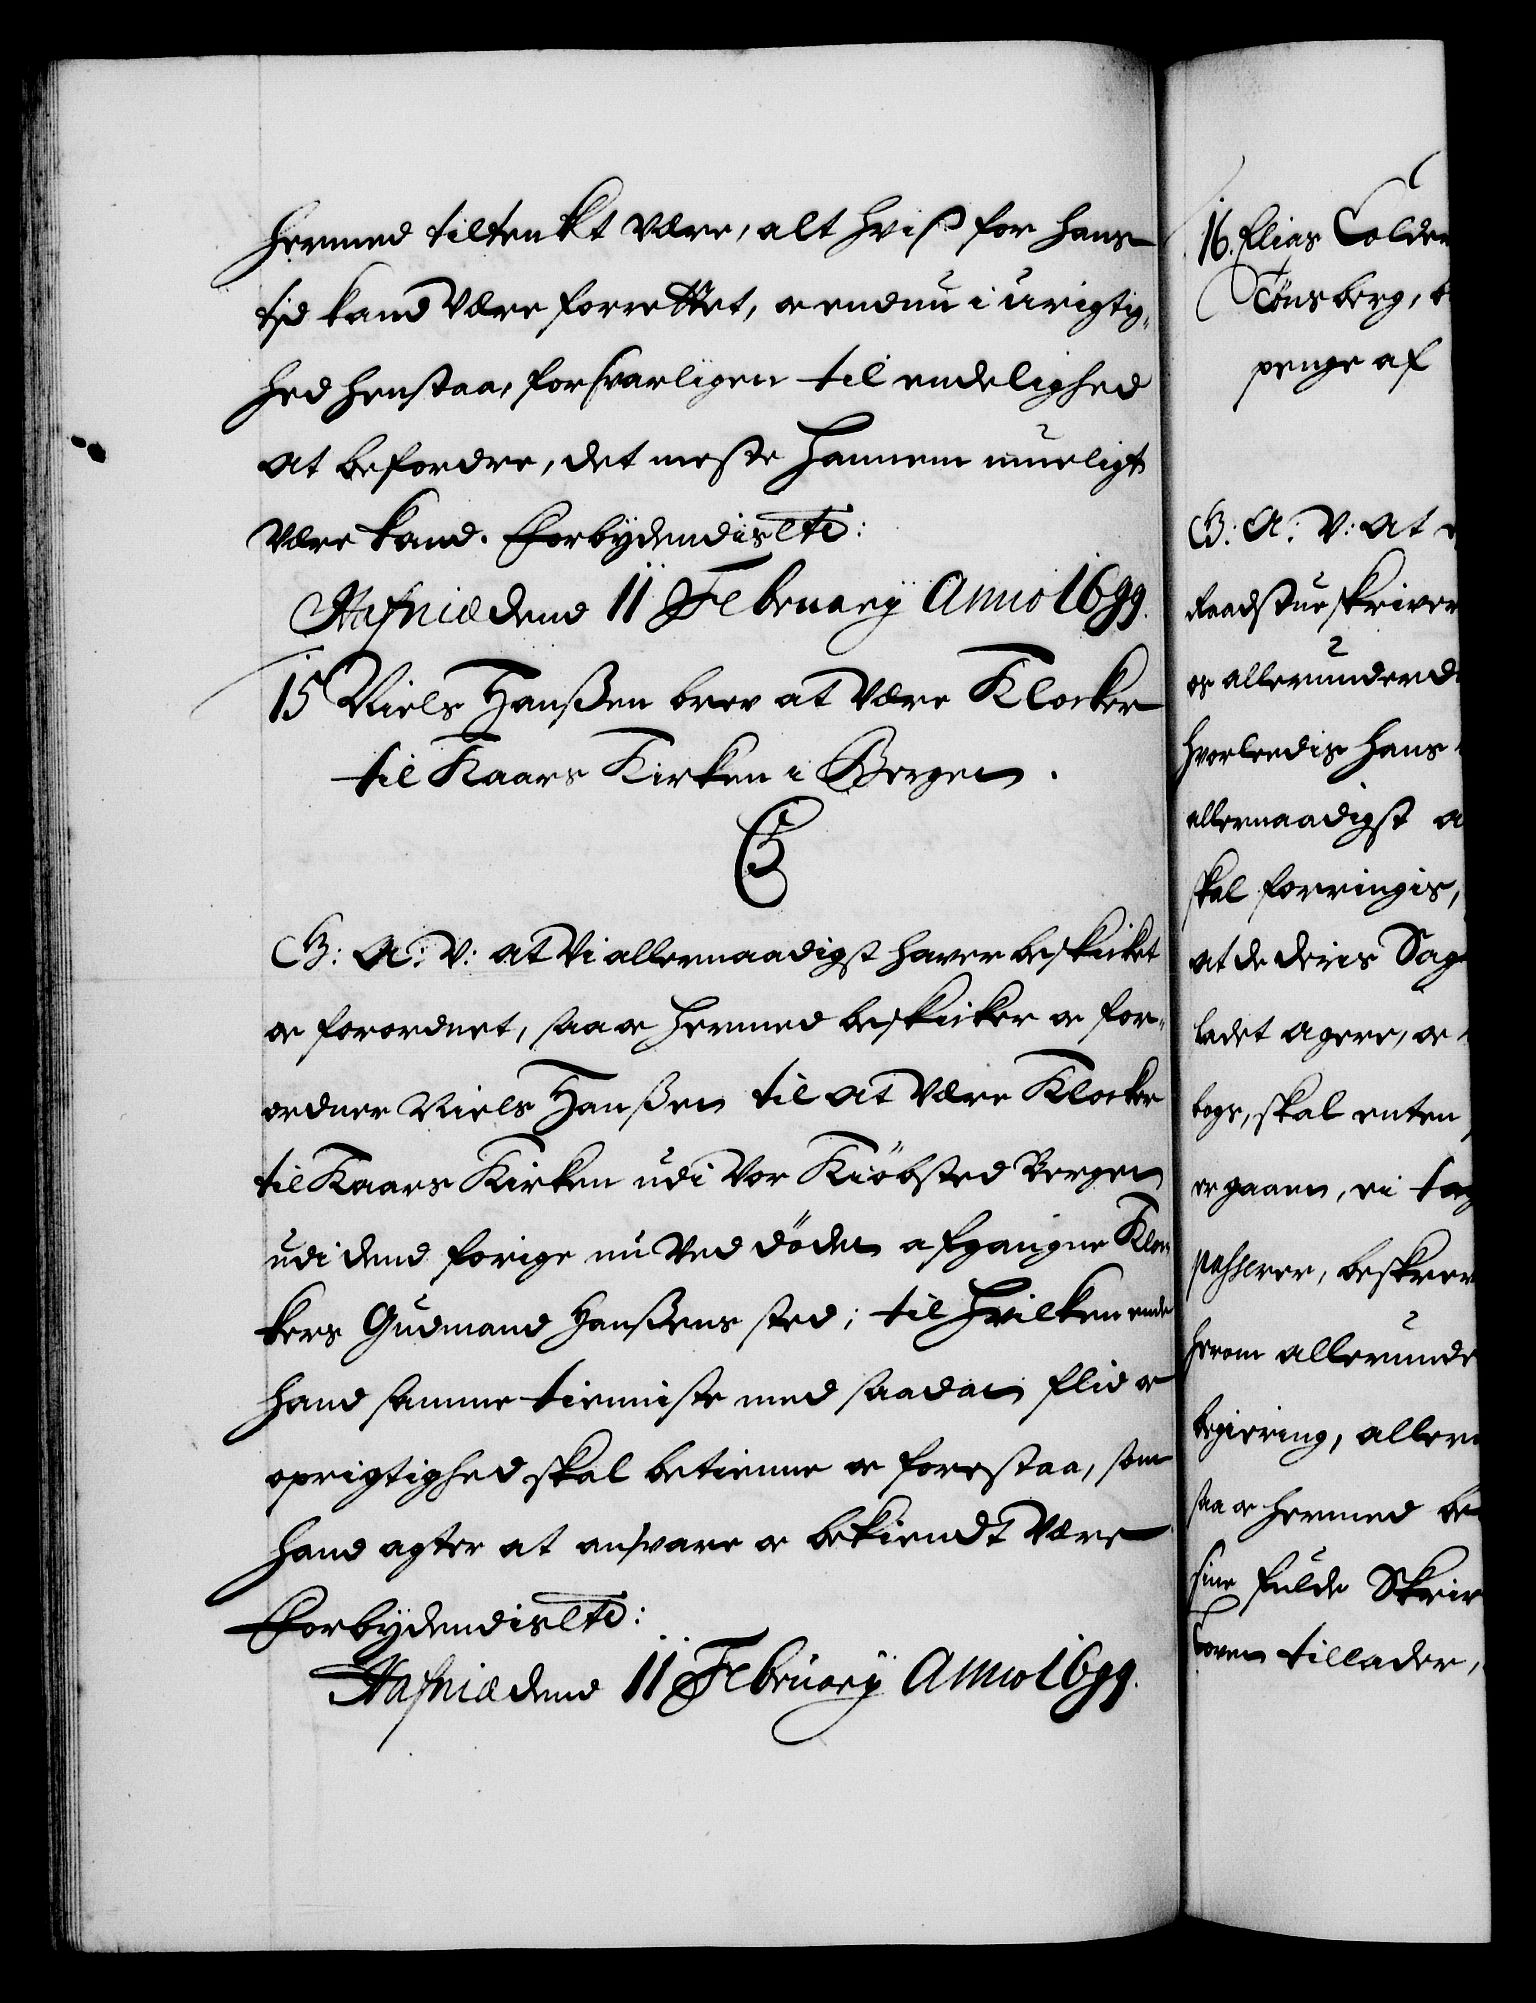 hermed tiltenkt være, alt hviß for hans
tid kand være forrettet, oc endnu i urigtig,
hed henstaa, forsvarligen til endelighed
at befordre, det meste hannem mueligt
være kand. Forbydendis etc:
Hafniæ dend 11 February Anno 1699.
15 Niels Hanßen brev at være Klocker
til Kaars Kirken i Bergen.
C5
G: A: V: at Vi allernaadigst haver beskicket
oc forordnet, saa oc hermed beskicker oc for-
ordner Niels Hanßen til at være Klocker
til Kaars Kirken udi Vor Kiöbsted Bergen
udi dend forige nu ved döden afgangne Kloc
kers Gudmand Hanßens sted; til hvilken ende
hand samme tienniste med saadan flid oc
oprigtighed skal betienne oc forestaa, som
hand agter at ansvare oc bekiendt være
Forbydendis etc:
Hafniæ dend 11 February Anno 1699.
16. Elias Colde
Tönsberg,
penge af
G: A: V: at
Raadstueskriver
os allerunderd
hvorledis hans
allernaadigst a
skal forringis,
at de deris Sag
ladet agere, oc
bogs, skal enten
ergaaen, ei tag
passerer, beskrev
herom allerunde
begiering, aller
saa oc hermed be
sine fulde Skriv
Loven tillader,